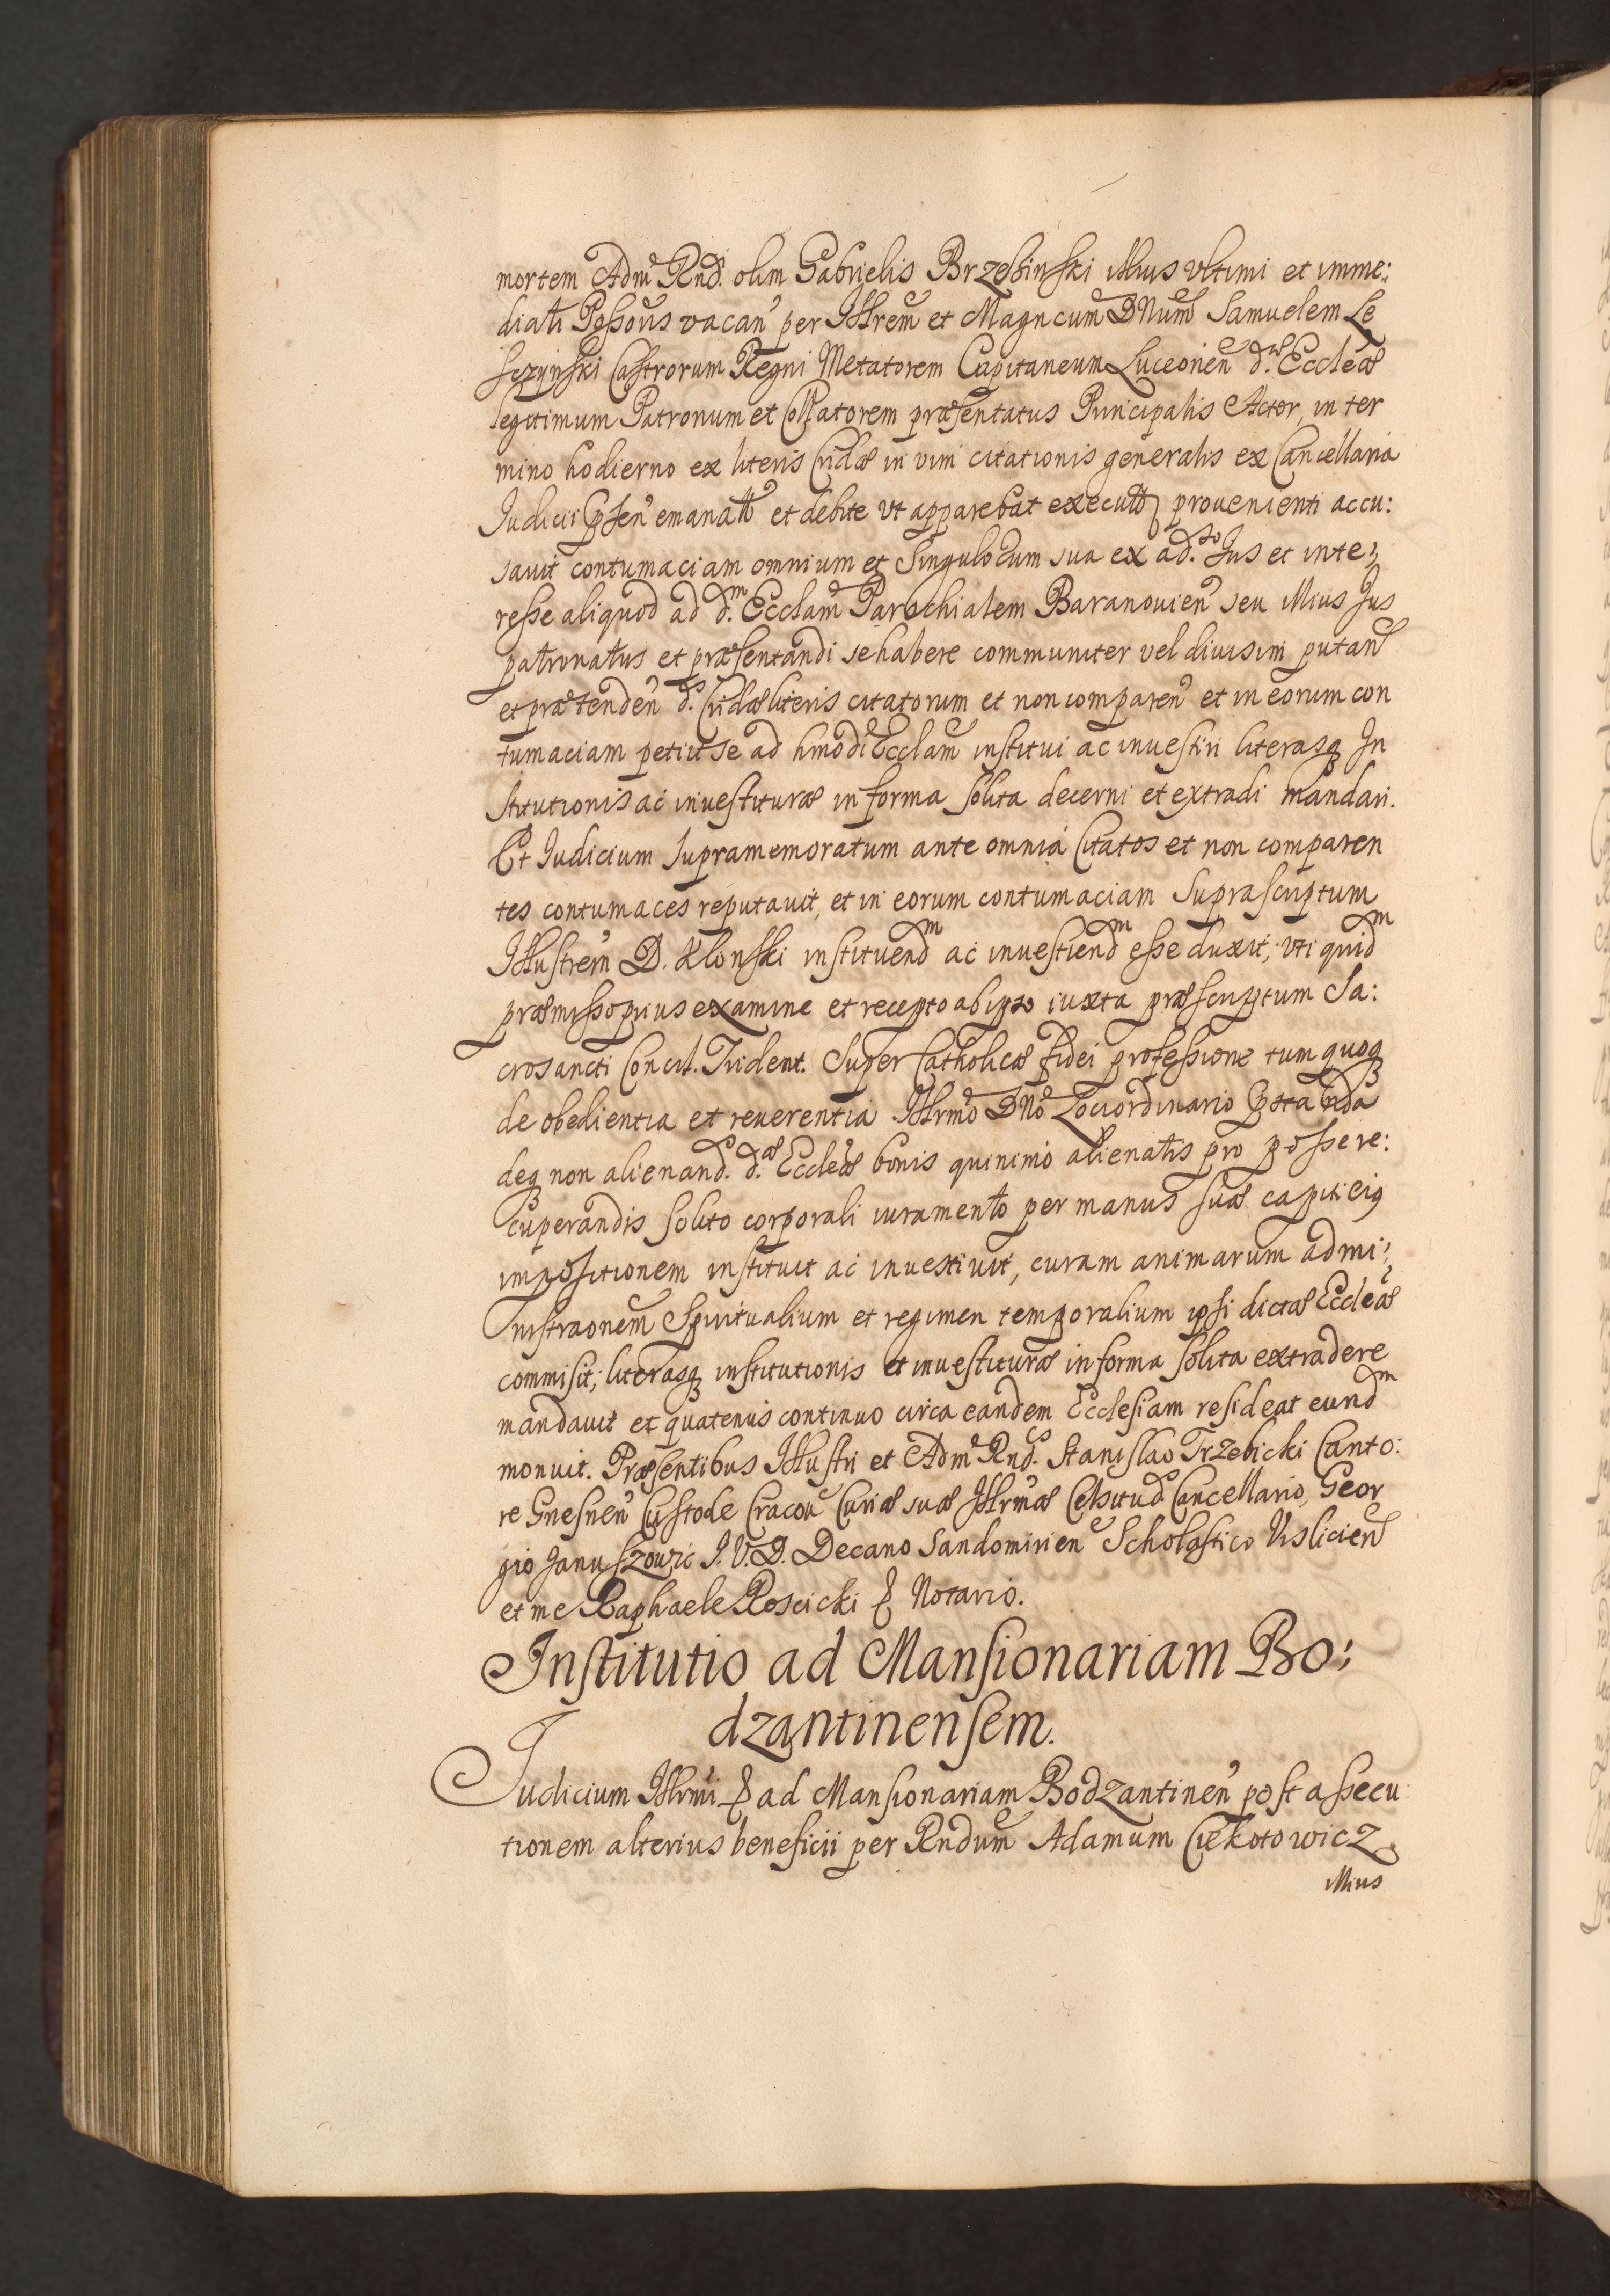 mortem Adm Rnd. olim Gabrielis Brzebinski illius vltimi et imme:
diati Possoris vacan per Illrem et Magncum DNum Samuelem Le
sczynski Castrorum Regni Metatorem Capitaneum Luceorien d. Eccleæ
legitimum Patronum et Collatorem præsentatus Principalis Actor, in ter
mino hodierno ex literis Cridæ in vim citationis generalis ex Cancellaria
Iudicii psen emanatt et debite vt apparebat executt provenienti accu:
savit contumaciam omnium et Singulorum sua ex ad.so Jus et inte:
resse aliquod ad d.m Ecclam Parochialem Baranovien seu illius Jus
patronatus et præsentandi se habere communiter vel divisim putan
et prætenden d.s Cridæ literis citatorum et non comparen et in eorum con
tumaciam petiit se ad hmodi Ecclam institui ac investiri literasq In
stitutionis ac investituræ in forma solita decerni et extradi mandari.
Et Iudicium supramemoratum ante omnia Citatos et non comparen
tes contumaces reputavit, et in eorum contumaciam Suprascriptum
Illustrem D. Klonski instituendm ac investiendm esse duxit, vti quidm
præmisso prius examine et recepto ab ipso iuxta præscriptum Sa:
crosancti Concil. Trident. Super Catholicæ fidei professione tum quoq
de obedientia et reverentia Illrmo DNo Loci ordinario pstanda
deq non alienand. d.æ Eccleæ bonis quinimo alienatis pro posse re:
cuperandis solito corporali iuramento per manus suæ capiti eiq
impositionem instituit ac investivit, curam animarum admi:
nistraonem Spiritualium et regimen temporalium ipsi dictæ Eccleæ
commisit; literasq institutionis et investituræ in forma solita extradere
mandavit et quatenus continuo circa eandem Ecclesiam resideat eundm
monuit. Præsentibus Illustri et Adm Rnd. Stanislao Trzebicki Canto:
re Gnesnen Custode Cracov Curiæ suæ Illrmæ Celsitud Cancellario, Geor
gio Januszowic I. V. D. Decano Sandomirien Scholastico Vislicien
et me Raphaele Roscicki & Notario.
Institutio ad Mansionariam Bo:
dzantinensem.
Judicium Illrmi & ad Mansionariam Bodzantinen post assecu
tionem alterius beneficii per Rndum Adamum Ciekotowicz
illius